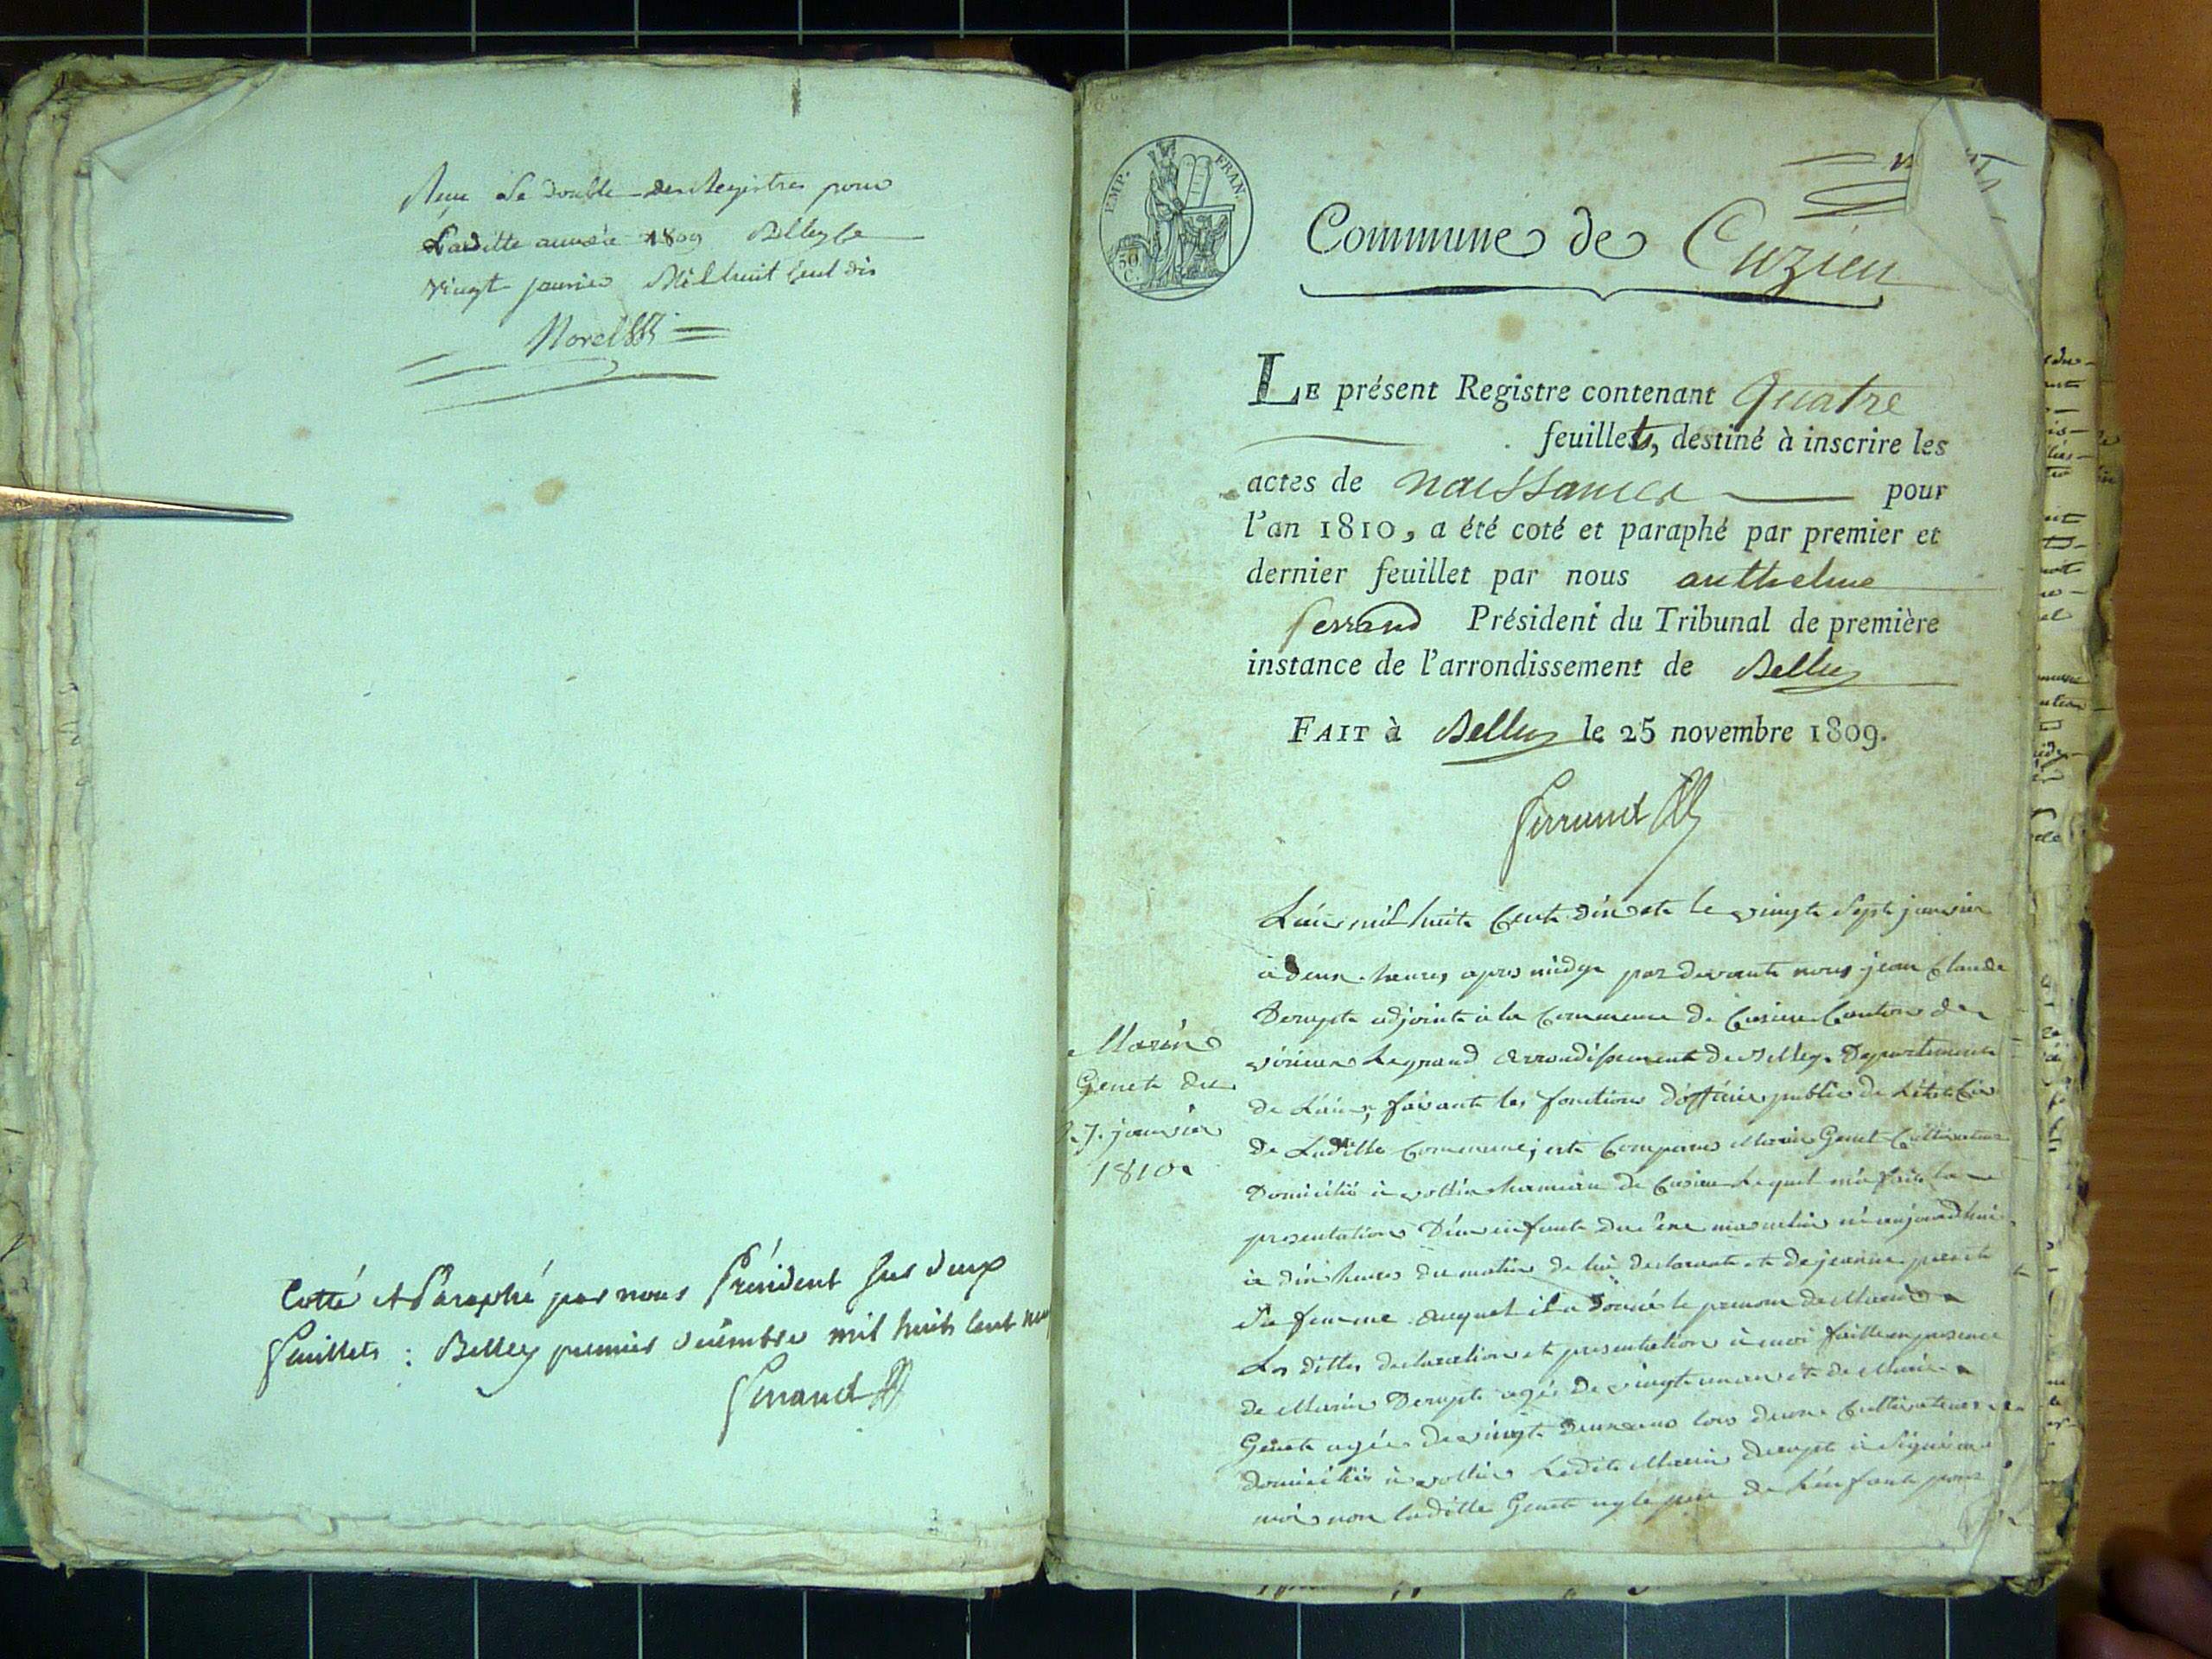 Reçu Le double des Registres pour
Laditte année 1809 Belley le
vingt janvier Mil huit Cent dix
Morel
Cotté et Paraphé par nous Président sur deux
feuillets : Belley premier décembre mil huit cent neuf
Ferrand
EMP. FRAN.
50 C.
Commune de Cuzieu
LE présent Registre contenant quatre
feuillets, destiné à inscrire les
actes de naissances pour
l'an 1810, a été coté et paraphé par premier et
dernier feuillet par nous anthelme
ferrand Président du Tribunal de première
instance de l'arrondissement de Belley
FAIT à Belley le 25 novembre 1809.
Ferrand
Marin
Genet du
27 janvier
1810
L'an mil huit Cent dix et le vingt Sept janvier
à deux heures apres midy par devant nous jean Claude
Derupt adjoint à la Commune de Cusieu Canton de
virieux Le grand arrondissement de Belley Departement
de L'ain, faisant les fonctions d'officier public de L'etat Civ
de Laditte Commune, est Comparu Marin Genet Cultivateur
Domicilié à vollin hameau de Cusieu Lequel m'a fait la
presentation D'un enfant du sexe masculin né aujourdhui
à dix heures du matin de lui declarant et de jeanne
Sa femme auquel il a donné le prenom de Marin
Les dittes declaration et presentation à moi faitte en presence
de Marin Derupt agé de vingt un ans et de Marie
Genet agée de vingt deux ans tous deux Cultivateurs
domiciliés à vollin Ledit Marin derupt à Signé avec
moi non laditte Genet ny le pere de L'enfant pour